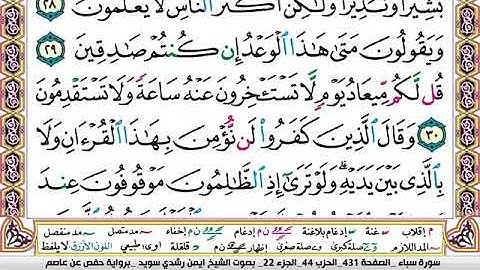 بَشِيرًا وَنَذِيرًا وَلَٰكِنَّ أَكْثَرَ ٱلنَّاسِ لَا يَعْلَمُونَ ٢٨
وَيَقُولُونَ مَتَىٰ هَٰذَا ٱلْوَعْدُ إِن كُنتُمْ صَادِقِينَ ٢٩
قُل لَّكُم مِّيعَادُ يَوْمٍ لَّا تَسْتَـْٔخِرُونَ عَنْهُ سَاعَةً وَلَا تَسْتَقْدِمُونَ
٣٠ وَقَالَ ٱلَّذِينَ كَفَرُوا۟ لَن نُّؤْمِنَ بِهَٰذَا ٱلْقُرْءَانِ وَلَا
بِٱلَّذِى بَيْنَ يَدَيْهِ ۗ وَلَوْ تَرَىٰٓ إِذِ ٱلظَّٰلِمُونَ مَوْقُوفُونَ عِندَ
م إقلاب غنة إدغام بلاغنة ن م إدغام ن م إخفاء مد متصل مد منفصل
المد اللازم صلة كبرى وصلة صغرى إظهار ن م قلقلة اوى: طبيعي اللون الأزرق لا يلفظ
سورة سباء _الصفحة 431_ الحزب 44_ الجزء 22_ بصوت الشيخ ايمن رشدي سويد _برواية حفص عن عاصم